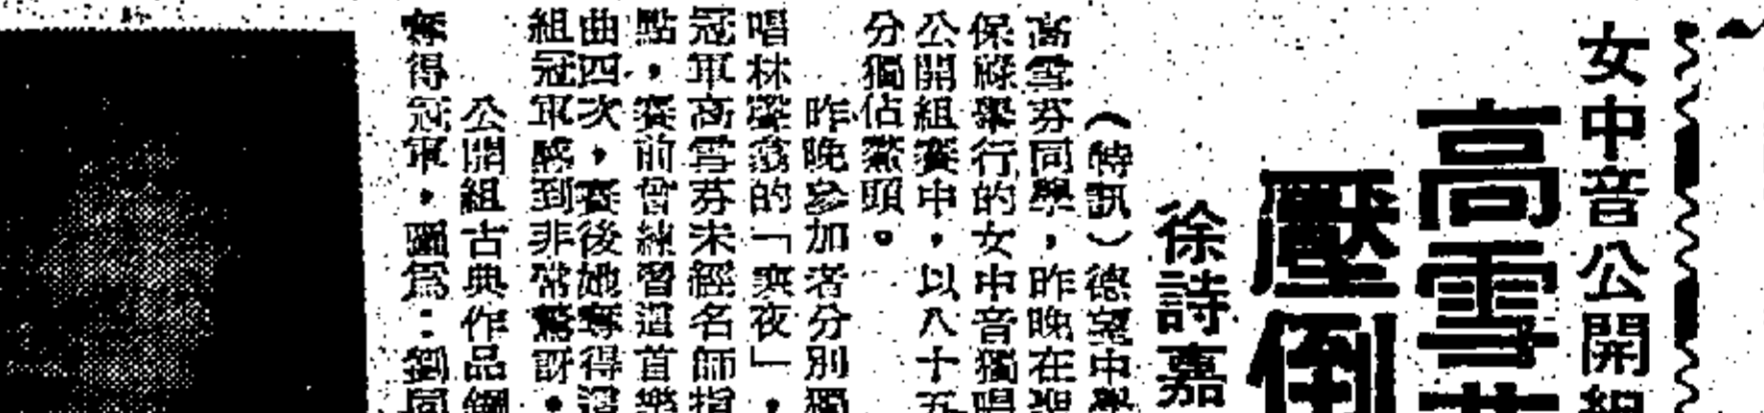 女中音公開組
高雪芬
壓倒
徐詩嘉
（特訊）德望中學
高雪芬同學，昨晚在聖
保祿舉行的女中音獨唱
公開組賽中，以八十五
分獨佔鰲頭。
昨晚參加者分別獨
唱林聲翕的「寒夜」，
冠軍高雪芬未經名師指
點，賽前曾練習這首樂
曲四次，賽後她奪得這
組冠軍感到非常驚訝。
公開組古典作品鋼
奪得冠軍，圖為：劉